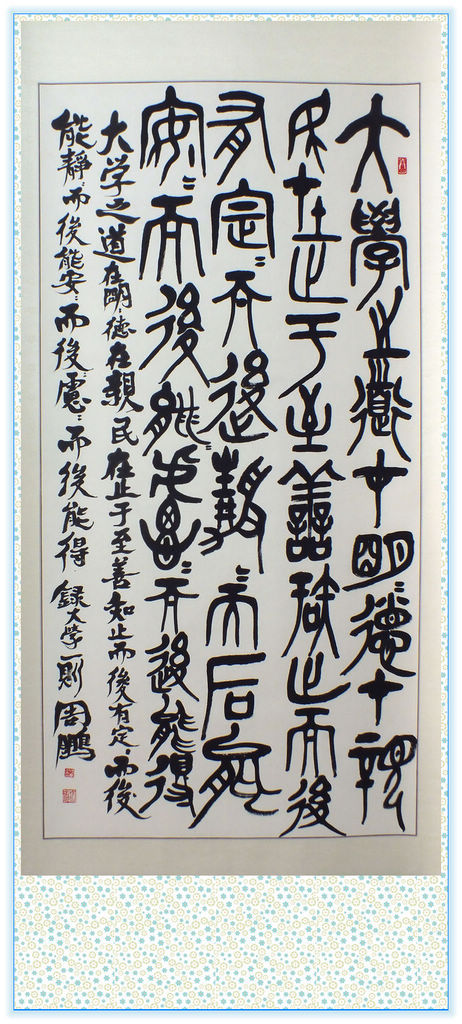 大學之道在明=德在親
民在止于至善知止而後
有定=而後静=而后能
安=而後能慮=而後能得
大学之道在明=德在親民在止于至善知止而後有定=而後
能静=而後能安=而後慮=而後能得 録大學則 周鵬